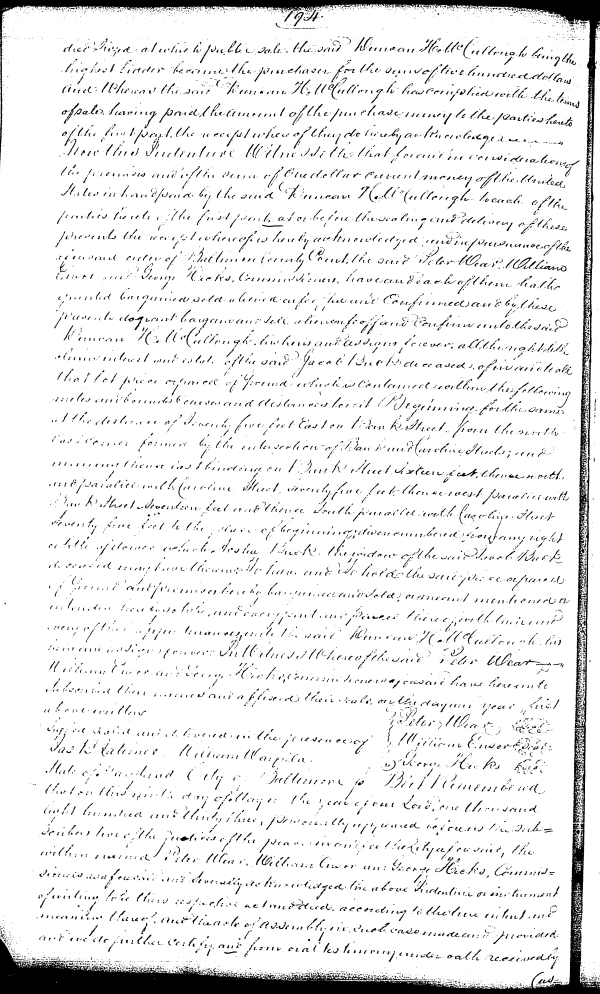 194
at which public sale the said Duncan H. McCullough being the
highest bidder became the purchaser for the sum of five hundred dollars
And Whereas the said Duncan H. McCullough has complied with the terms
of sale, having paid the amount of the purchase money to the parties hereto
of the first part, the receipt whereof they do hereby acknowledge
Now this Indenture Witnesseth that for and in consideration of
the premises and of the sum of One dollar current money of the United
States in hand paid by the said Duncan H. McCullough to each of the
parties hereto of the first part, at or before the sealing and delivery of these
presents the receipt whereof is hereby acknowledged, and in pursuance of the
order of Baltimore County Court, the said Peter Wear, William
Ensor and George Hicks, Commissioners, have and each of them hath
granted bargained sold aliened enfeoffed and Confirmed and by these
presents do grant bargain and sell alien enfeoff and Confirm unto the said
Duncan H. McCullough, his heirs and assigns forever, all the right title
claim interest and estate of the said Jacob Buck deceased, of in and to all
that lot piece or parcel of Ground which is contained within the following
metes and bounds courses and distances to wit Beginning for the same
at the distance of Seventy five feet East on Bank Street from the north
East corner formed by the intersection of Bank and Caroline Streets, and
running thence east binding on Bank Street Sixteen feet, thence north
and parallel with Caroline Street, seventy five feet thence west parallel with
Bank Street Seventeen feet and thence South parallel with Caroline Street
Seventy five feet to the place of beginning, disencumbered from any right
or title of dower which Buck the widow of the said Jacob Buck
deceased may have therein To have and to hold the said piece or parcel
of Ground and premises hereby bargained and sold, or meant mentioned or
intended hereby so to be, and every part and parcel thereof with their and
every of their appurtenances unto the said Duncan H. McCullough his
heirs and assigns forever. In Witness Whereof the said Peter Wear
William Ensor and George Hicks, Commissioners as aforesaid have hereunto
Subscribed their names and affixed their seals, on the day and year first
above written
Signed Sealed and delivered in the presence of Peter Wear Seal
Jas. K. Latimer William Ensor Seal
George Hicks Seal
State of Maryland City of Baltimore Be it Remembered
that on this day of May in the year of our Lord, one thousand
Eight hundred and thirty three, personally appeared before us the Sub=
scribers two of the Justices of the peace in and for the City aforesaid, the
within named Peter Wear, William Ensor and George Hicks, Commis=
sioners as aforesaid and severally acknowledged the above Indenture or instrument
of writing to be their respective act and deed, according to the true intent and
meaning thereof, and the acts of Assembly in such case made and provided
and we do further Certify and from oral testimony under oath received by
(us